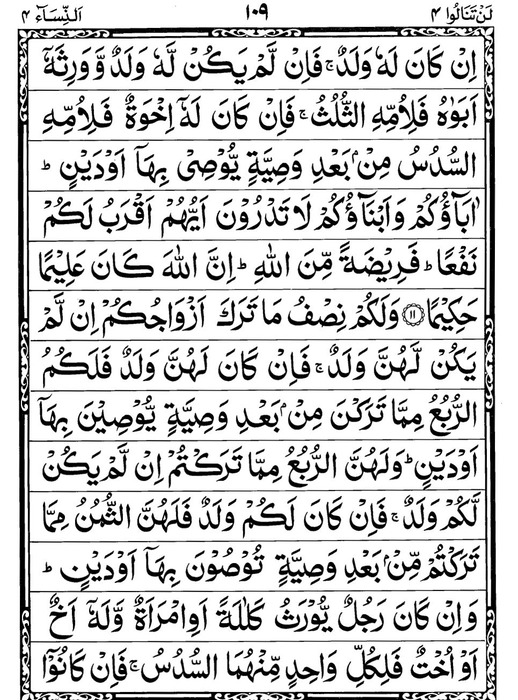 لَنْ تَنَالُوا ۴ ١٠٩ اَلنِّسَآء ۴
اِنْ كَانَ لَهٗ وَلَدٌ ۚ فَاِنْ لَّمْ يَكُنْ لَّهٗ وَلَدٌ وَّوَرِثَهٗۤ
اَبَوٰهُ فَلِاُمِّهِ الثُّلُثُ ۚ فَاِنْ كَانَ لَهٗۤ اِخْوَةٌ فَلِاُمِّهِ
السُّدُسُ مِنْۢ بَعْدِ وَصِيَّةٍ يُّوْصِىْ بِهَاۤ اَوْدَيْنٍ ؕ
اٰبَآؤُكُمْ وَاَبْنَآؤُكُمْ لَا تَدْرُوْنَ اَيُّهُمْ اَقْرَبُ لَكُمْ
نَفْعًا ؕ فَرِيْضَةً مِّنَ اللّٰهِ ؕ اِنَّ اللّٰهَ كَانَ عَلِيْمًا
حَكِيْمًا ⑪ وَلَكُمْ نِصْفُ مَا تَرَكَ اَزْوَاجُكُمْ اِنْ لَّمْ
يَكُنْ لَّهُنَّ وَلَدٌ ۚ فَاِنْ كَانَ لَهُنَّ وَلَدٌ فَلَكُمُ
الرُّبُعُ مِمَّا تَرَكْنَ مِنْۢ بَعْدِ وَصِيَّةٍ يُّوْصِيْنَ بِهَاۤ
اَوْدَيْنٍ ؕ وَلَهُنَّ الرُّبُعُ مِمَّا تَرَكْتُمْ اِنْ لَّمْ يَكُنْ
لَّكُمْ وَلَدٌ ۚ فَاِنْ كَانَ لَكُمْ وَلَدٌ فَلَهُنَّ الثُّمُنُ مِمَّا
تَرَكْتُمْ مِّنْۢ بَعْدِ وَصِيَّةٍ تُوْصُوْنَ بِهَاۤ اَوْدَيْنٍ ؕ
وَاِنْ كَانَ رَجُلٌ يُّوْرَثُ كَلٰلَةً اَوِامْرَاَةٌ وَّلَهٗۤ اَخٌ
اَوْ اُخْتٌ فَلِكُلِّ وَاحِدٍ مِّنْهُمَا السُّدُسُ ۚ فَاِنْ كَانُوْۤا